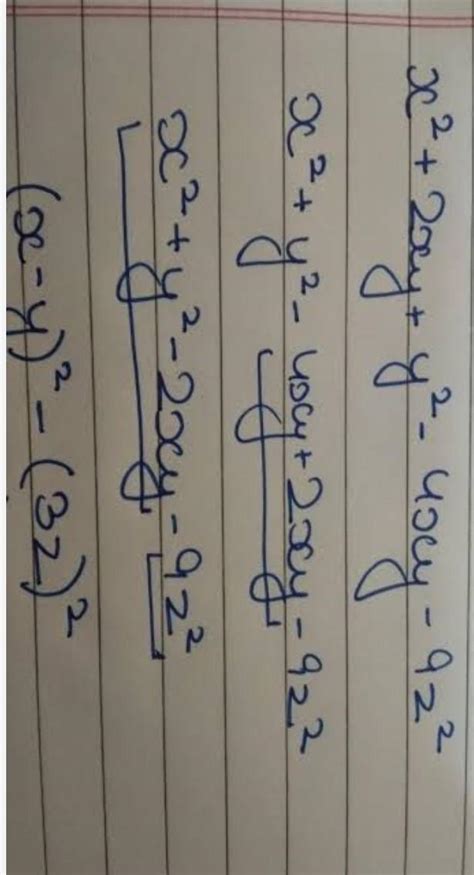 x² + 2xy + y² - 4xy - 9z²
x² + y² - 4xy + 2xy - 9z²
x² + y² - 2xy - 9z²
(x - y)² - (3z)²